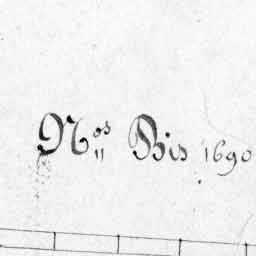 Nos Bis 1690